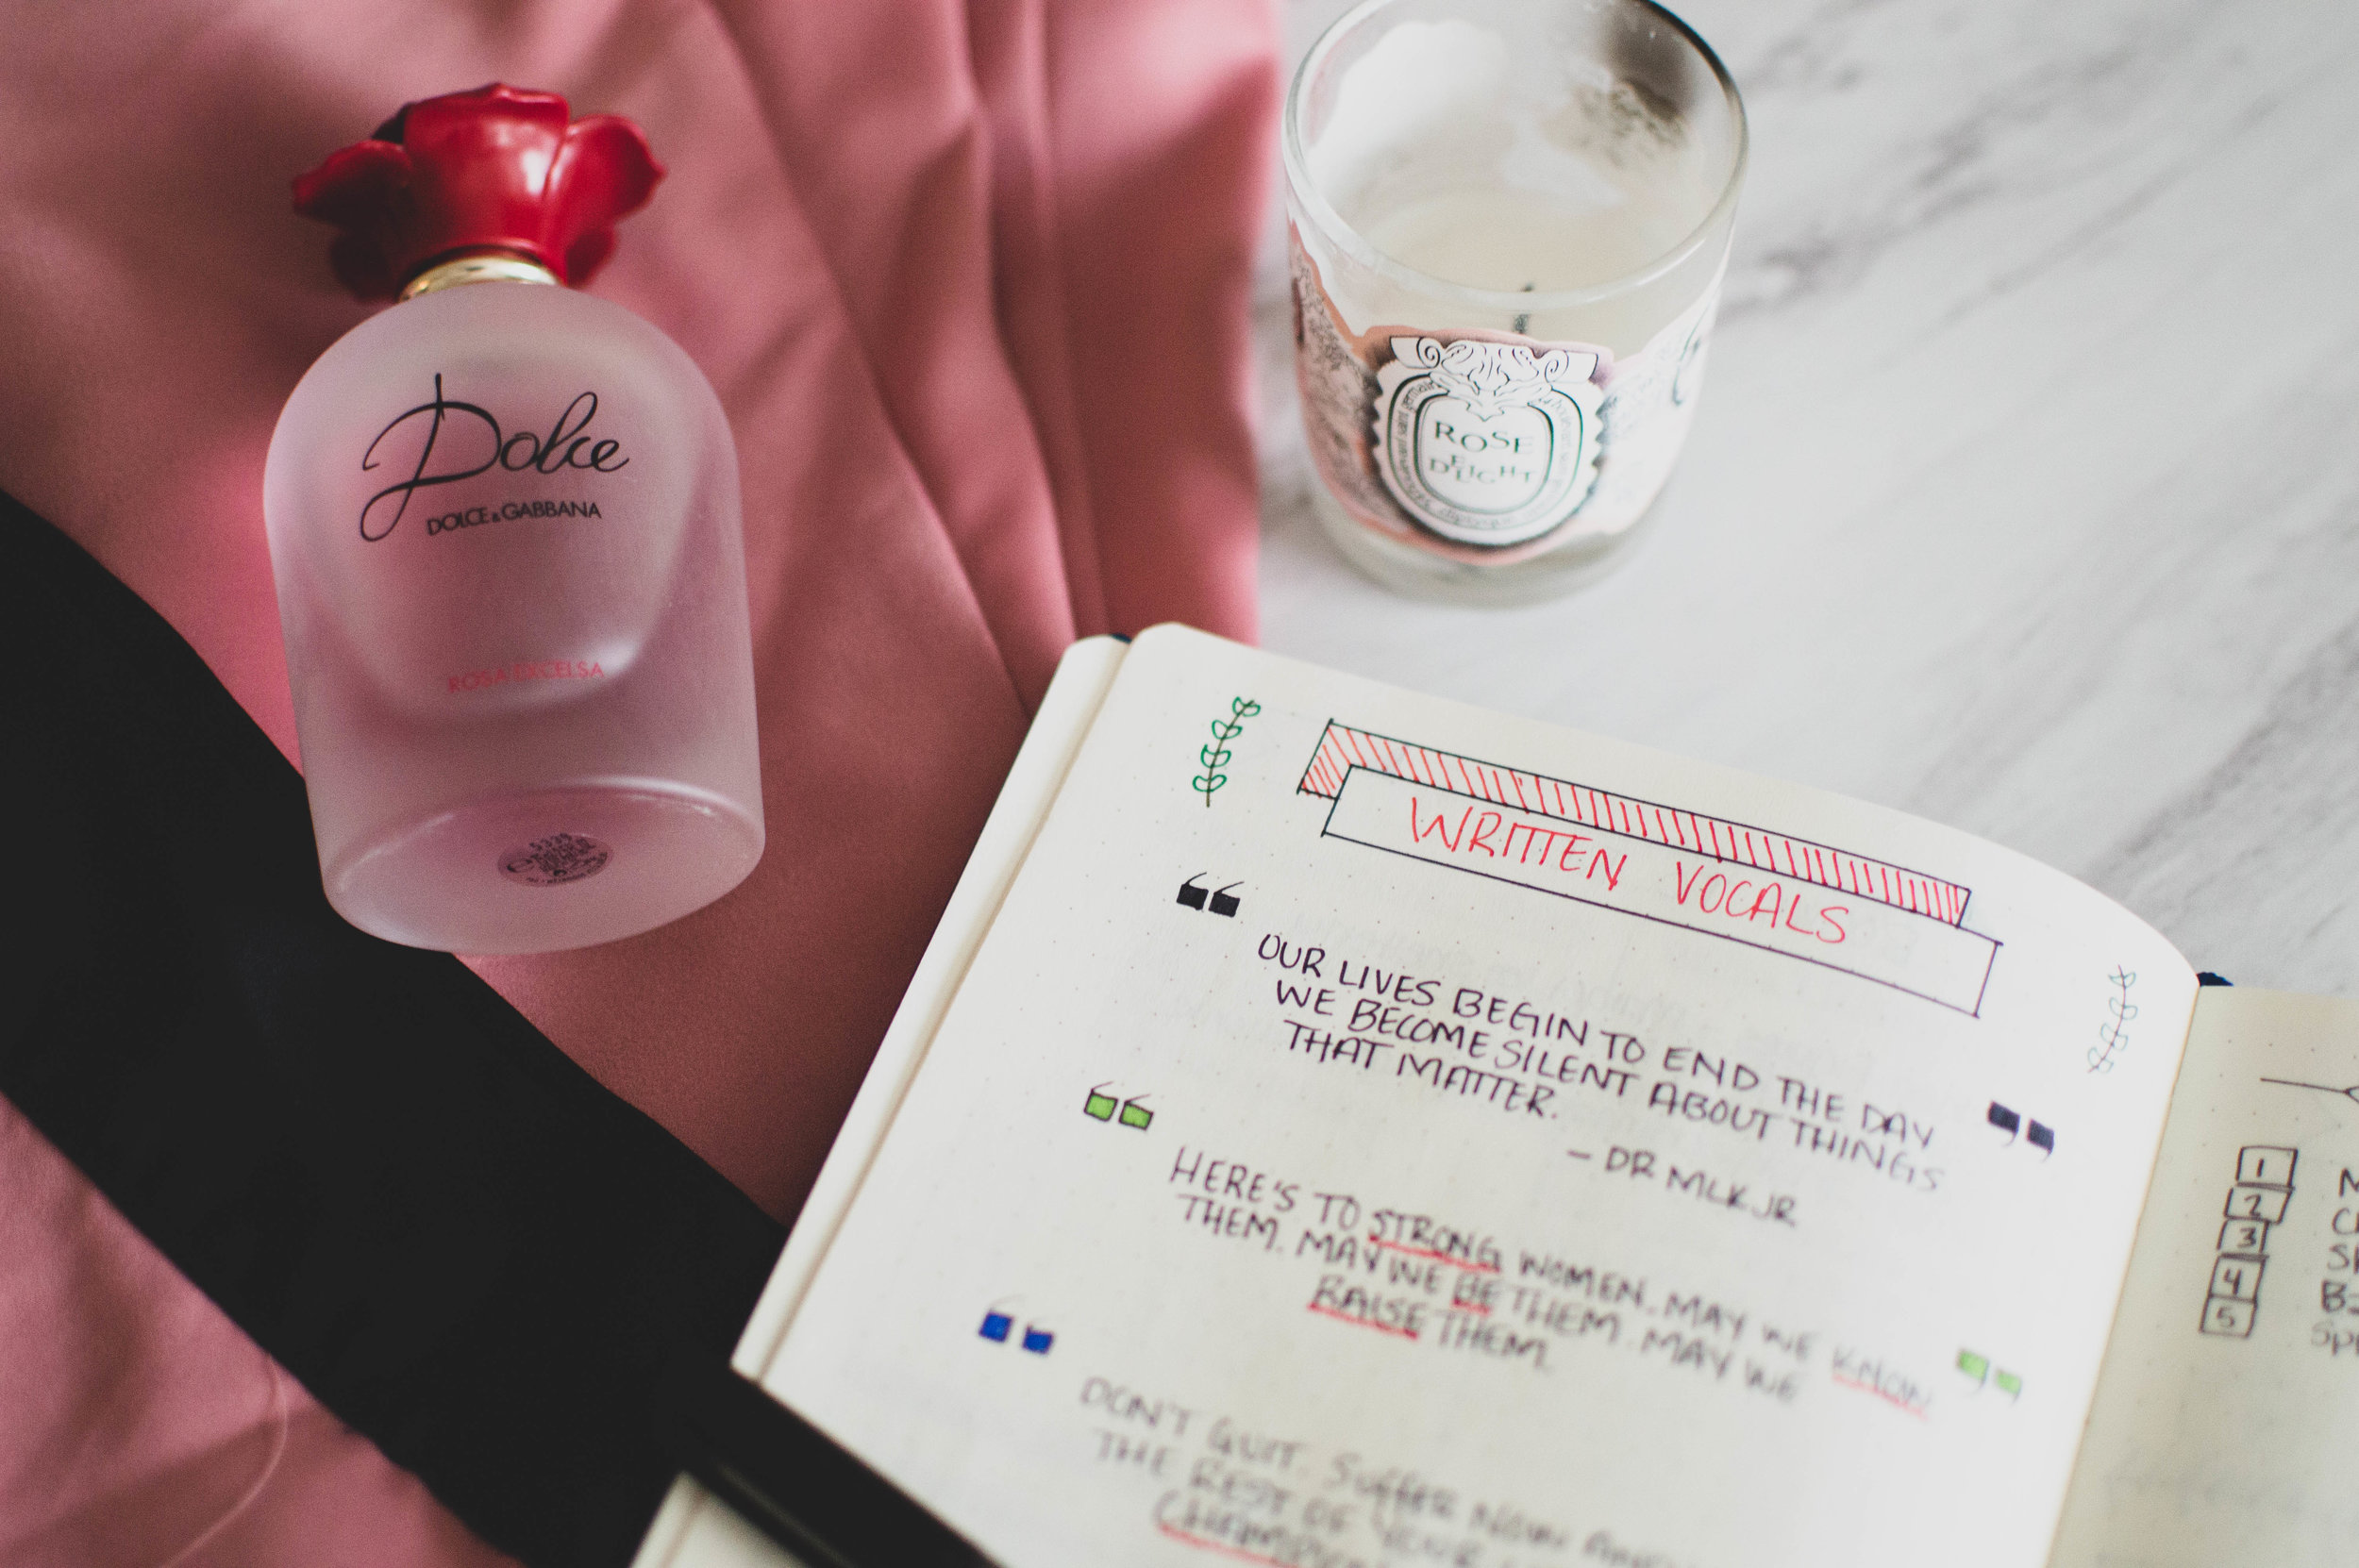 Dolce
DOLCE & GABBANA
ROSA EXCELSA
ROSE
DELIGHT
WRITTEN VOCALS
OUR LIVES BEGIN TO END THE DAY
WE BECOME SILENT ABOUT THINGS
THAT MATTER.
– DR MLK JR
HERE'S TO STRONG WOMEN. MAY WE KNOW
THEM. MAY WE BE THEM. MAY WE
RAISE THEM.
DON'T QUIT. SUFFER NOW AND
THE REST OF YOUR
1
2
3
4
5